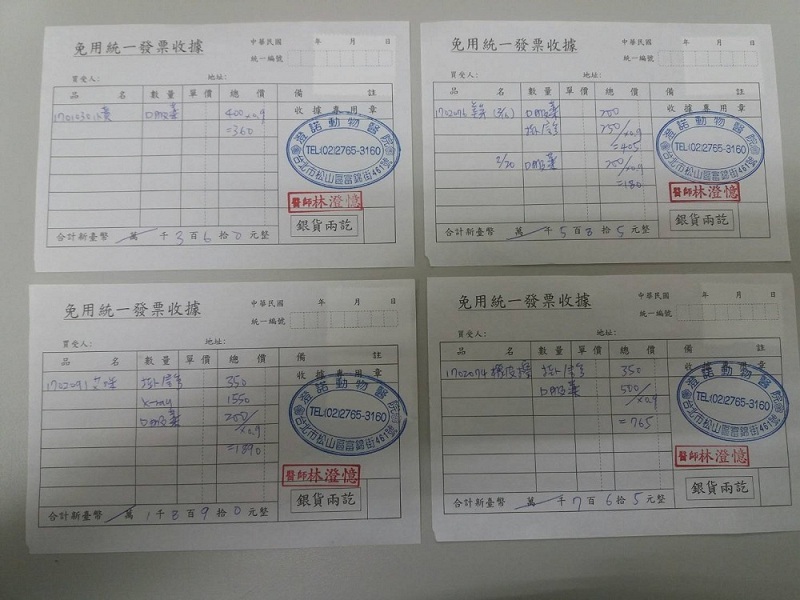 免用統一發票收據
中華民國 年 月 日
統一編號
買受人: 地址:
品 名 數量 單價 總價 備 註
收據專用章
1701030 口服藥 400 x0.9
=360
澄諾動物醫院
TEL:(02)2765-3160
台北市松山區富錦街461號
醫師林澄憶
銀貨兩訖
合計新臺幣 萬 千 3 百 6 拾 0 元整
免用統一發票收據
中華民國 年 月 日
統一編號
買受人: 地址:
品 名 數量 單價 總價 備 註
收據專用章
1702076 口服藥 200
掛診 250/x0.9
=405
2/20 口服藥 200/x0.9
=180
澄諾動物醫院
TEL:(02)2765-3160
台北市松山區富錦街461號
醫師林澄憶
銀貨兩訖
合計新臺幣 萬 千 5 百 8 拾 5 元整
免用統一發票收據
中華民國 年 月 日
統一編號
買受人: 地址:
品 名 數量 單價 總價 備 註
收據專用章
1702091 掛診 350
X-ray 1550
口服藥 200/x0.9
=1890
澄諾動物醫院
TEL:(02)2765-3160
台北市松山區富錦街461號
醫師林澄憶
銀貨兩訖
合計新臺幣 萬 1 千 8 百 9 拾 0 元整
免用統一發票收據
中華民國 年 月 日
統一編號
買受人: 地址:
品 名 數量 單價 總價 備 註
收據專用章
1702074 掛診 350
口服藥 500/x0.9
=765
澄諾動物醫院
TEL:(02)2765-3160
台北市松山區富錦街461號
醫師林澄憶
銀貨兩訖
合計新臺幣 萬 千 7 百 6 拾 5 元整